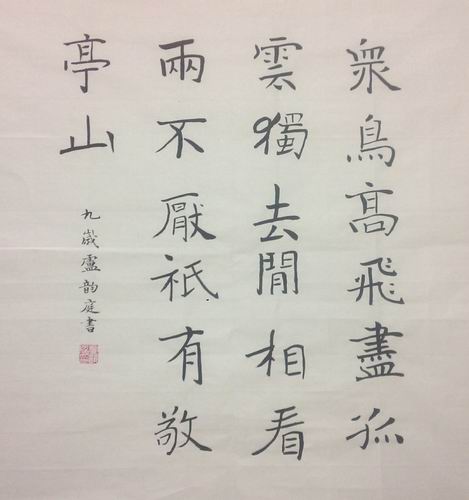 衆鳥高飛盡孤
雲獨去閒相看
兩不厭祇有敬
亭山
九歲盧韵庭書